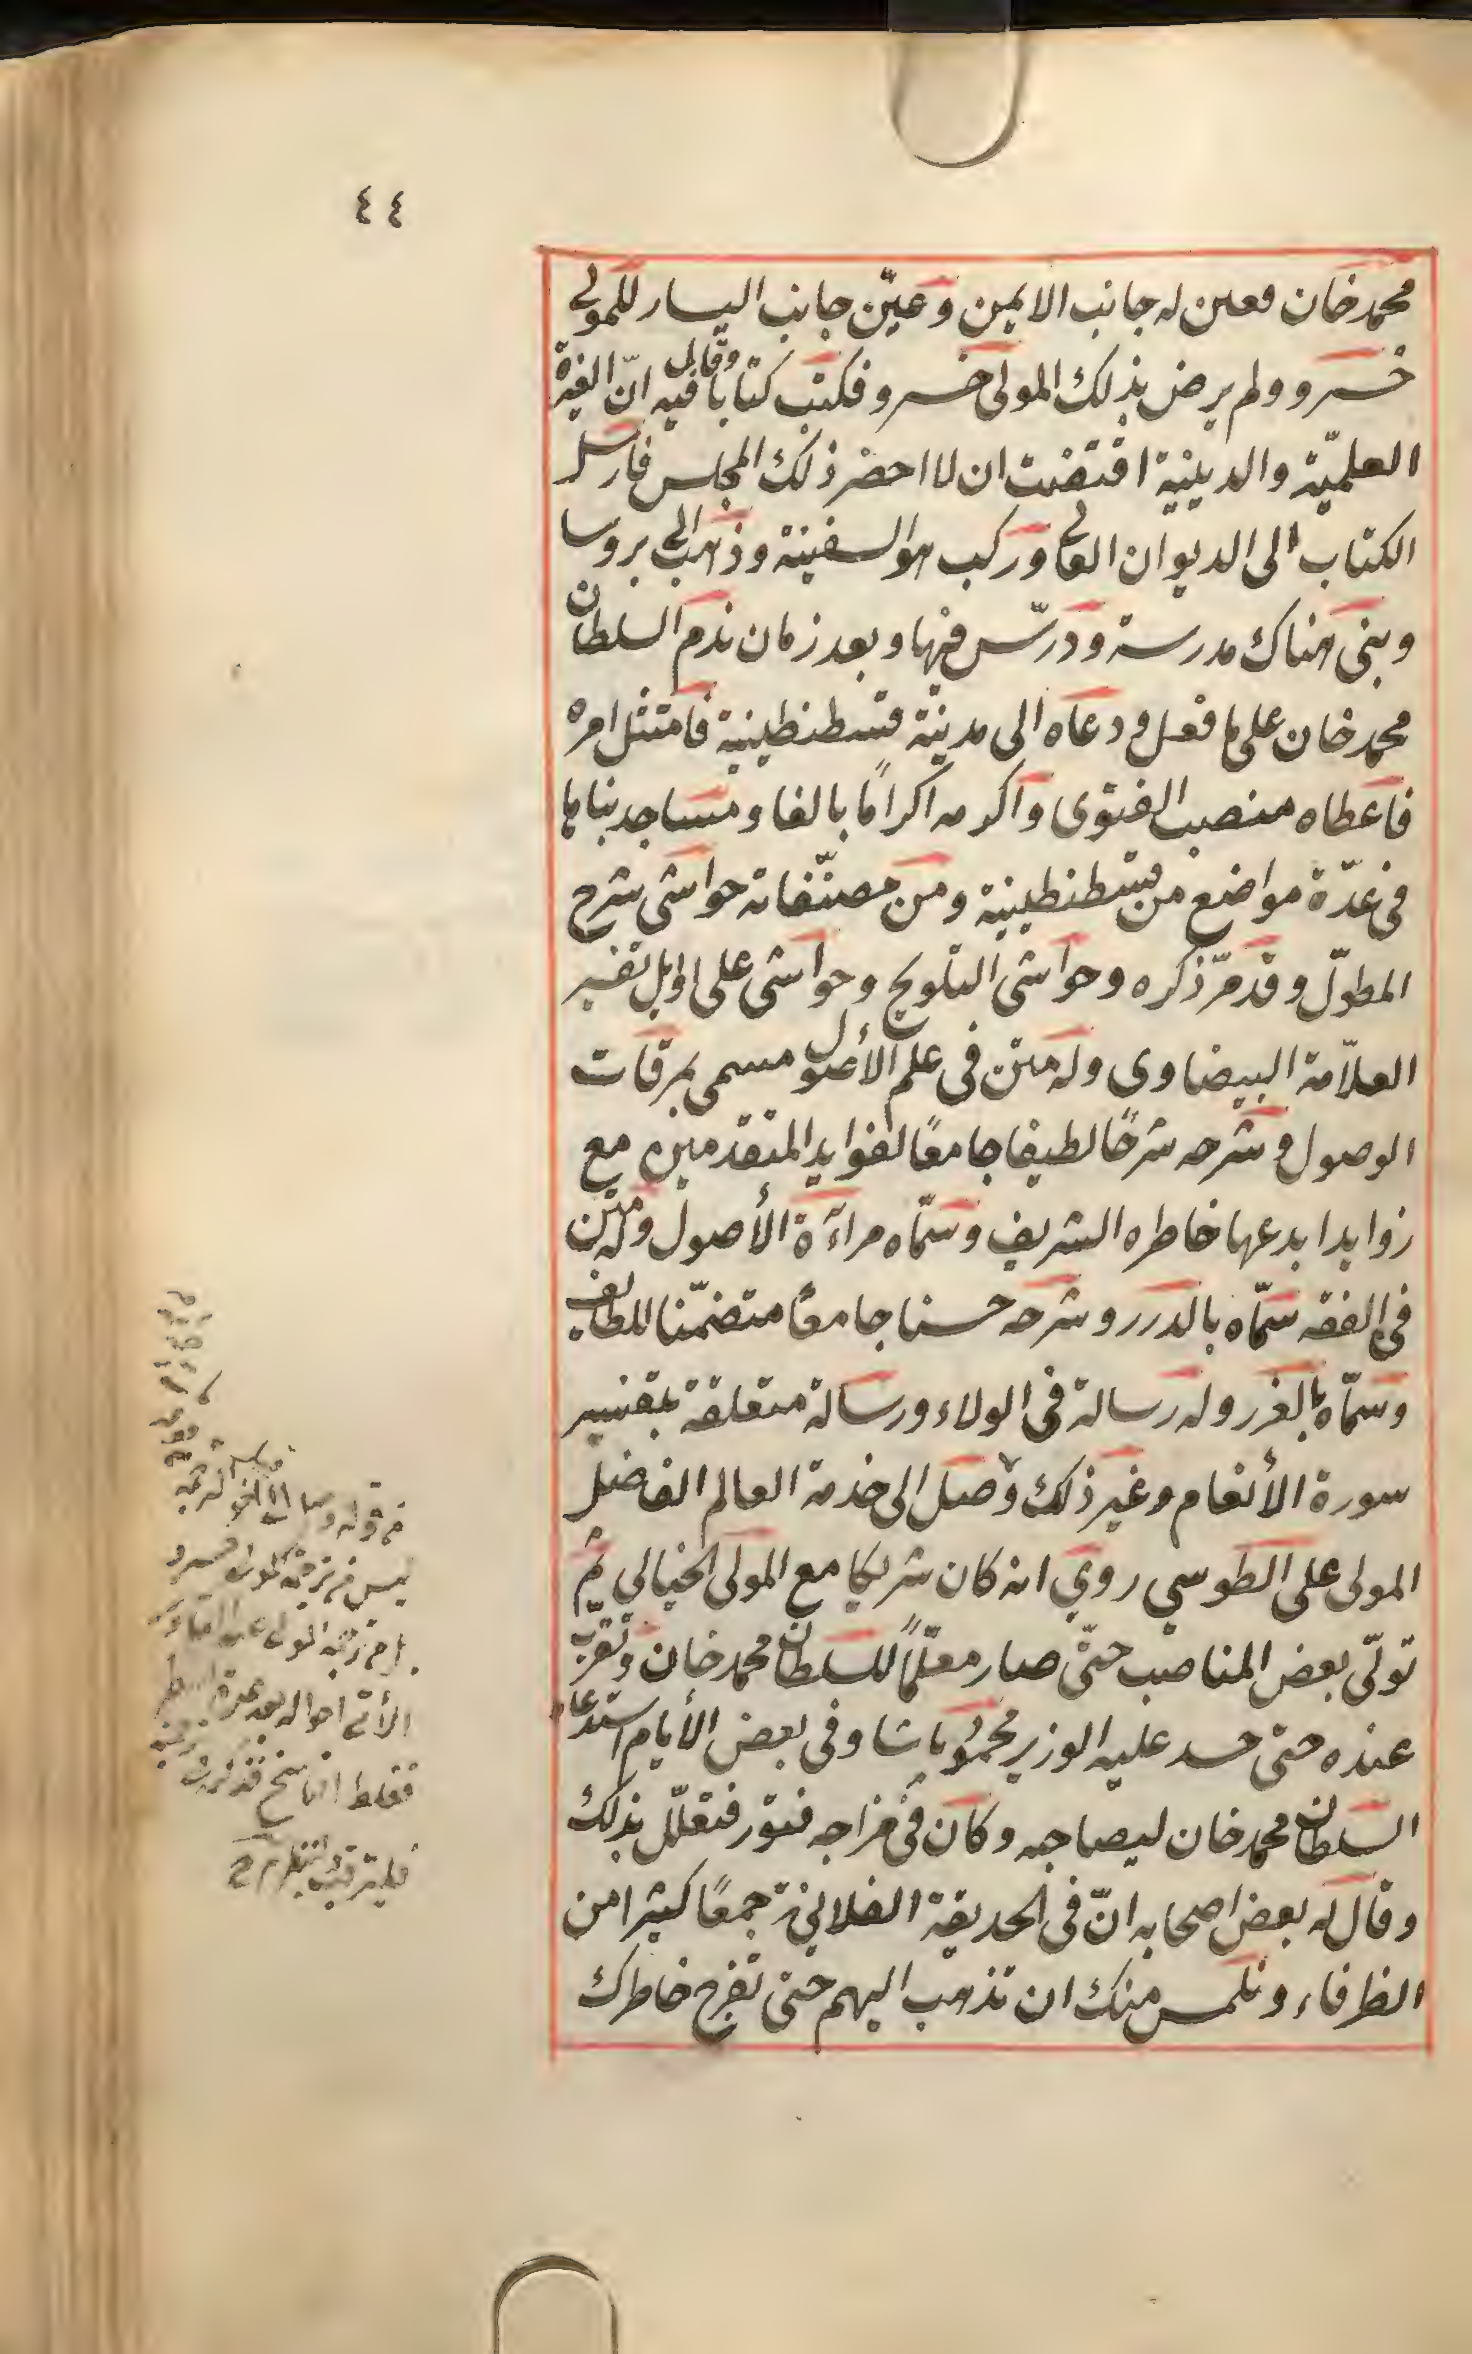 ٤٤
محمد خان فعين له جانب الايمين وعيّن جانب اليسار للمولى
خسرو ولم يرض بذلك المولى خسرو فكتب كتابا وقال فيه انّ الغيرة
العلميّة والدينية اقتضت ان لا احضر ذلك المجلس فارسل
الكتاب الى الديوان العالى وركب هو السفينة وذهب الى بروسا
وبنى هناك مدرسة ودرّس فيها وبعد زمان ندم السلطان
محمد خان على ما فعل ودعاه الى مدينة قسطنطينية فامتثل امره
فاعطاه منصب الفتوى واكرمه اكرامًا بالغا ومساجد بناها
فى عدّة مواضع من قسطنطينية ومن مصنّفاته حواشى شرح
المطوّل وقد مرّ ذكره وحواشى التلويح وحواشى على اوايل تفسير
العلاّمة البيضاوى وله متن فى علم الأصول مسمى بمرقات
الوصول وشرحه شرحًا لطيفا جامعًا لفوايد المتقدمين مع
زوايد ابدعها خاطره الشريف وسمّاه مرآءة الأصول وله متن
فى الفقه سمّاه بالدرر وشرحه حسنا جامعًا متضمّنا للطايف
وسمّاه بالغرر وله رسالة فى الولاء ورسالة متعلقة بتفسير
سورة الأنعام وغير ذلك وصل الى خدمة العالم الفاضل
المولى على الطوسي روي انه كان شريكا مع المولى الخيالي ثم
تولّى بعض المناصب حتّى صار معلّمًا للسلطان محمد خان وتقرّب
عنده حتى حسد عليه الوزير محمود باشا وفى بعض الأيام استدعاه
السلطان محمد خان ليصاحبه وكان فى مزاجه فتور فتعلّل بذلك
وقال له بعض اصحابه انّ فى الحديقة الفلانية جمعًا كثيرا من
الظرفاء ونلتمس منك ان تذهب اليهم حتى تفرح خاطرك
من قوله وصل الى الخ
ليس من ترجمة المولى خسرو
بل من ترجمة المولى عبد القادر
الأتى احواله بعد
فغلط الناسخ